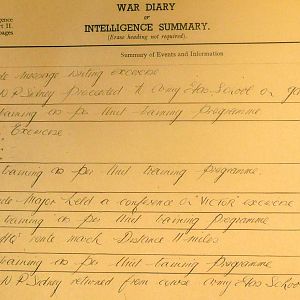 WAR DIARY
OR
INTELLIGENCE SUMMARY.
(Erase heading not required).
igence
rt II.
pages
Summary of Events and Information
Message writing exercise
N P Sidney proceeded to Army Gas School on
training as per Unit training Programme
Exercise
training as per Unit training Programme.
Major held a conference on "VICTOR" exercise
training as per Unit training Programme
route march Distance 11 miles
training as per Unit training Programme.
N P Sidney returned from course Army Gas School